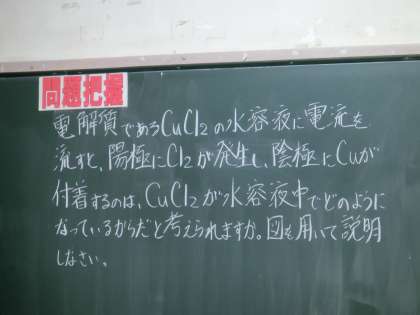 問題把握
電解質であるCuCl2の水容液に電流を
流すと、陽極にCl2が発生し、陰極にCuが
付着するのは、CuCl2が水容液中でどのように
なっているからだと考えられますか。図を用いて説明
しなさい。